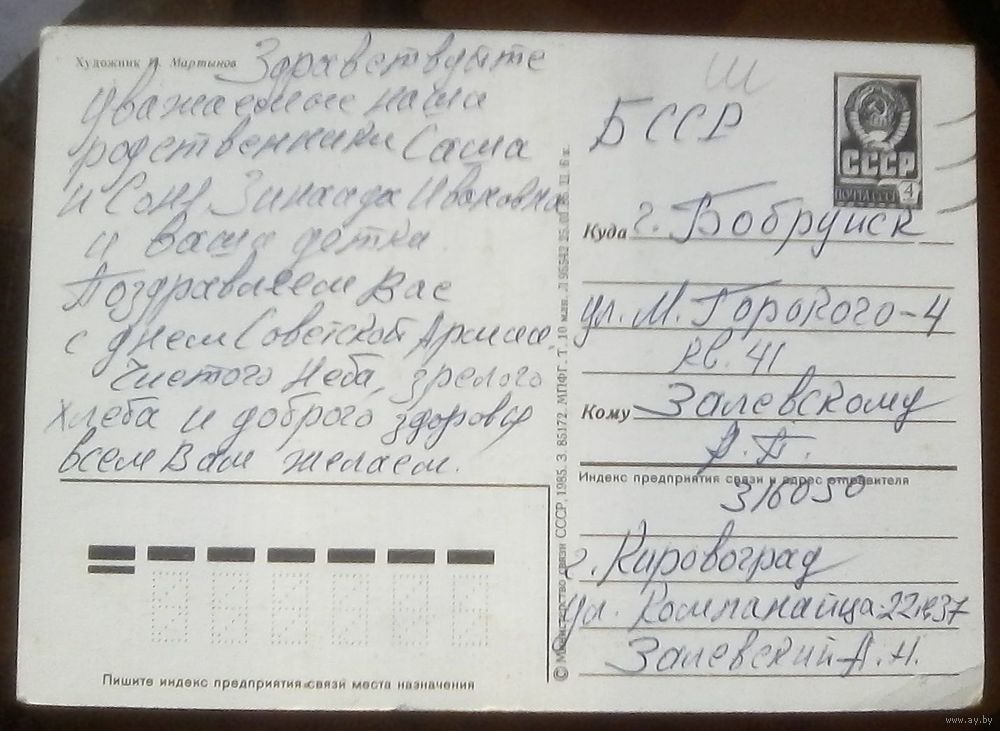 Художник И. Мартынов
Здравствуйте
уважаемые наши
родственники Саша
и Соня, Зинаида Ивановна
и ваши детки.
Поздравляем Вас
с днем Советской Армии.
Чистого Неба, зрелого
хлеба и доброго здоровья
всем Вам желаем.
Пишите индекс предприятия связи места назначения
© Министерство связи СССР, 1985. З. 85172. МПФГ. Т. 10 млн.
БССР
СССР
ПОЧТА СССР 4
Куда г. Бобруйск
ул. М. Горького-4
кв. 41
Кому Залевскому
Индекс предприятия связи и адрес отправителя
316050
г. Кировоград
ул. Компанайца-22
Залевский А.Н.
www.ay.by